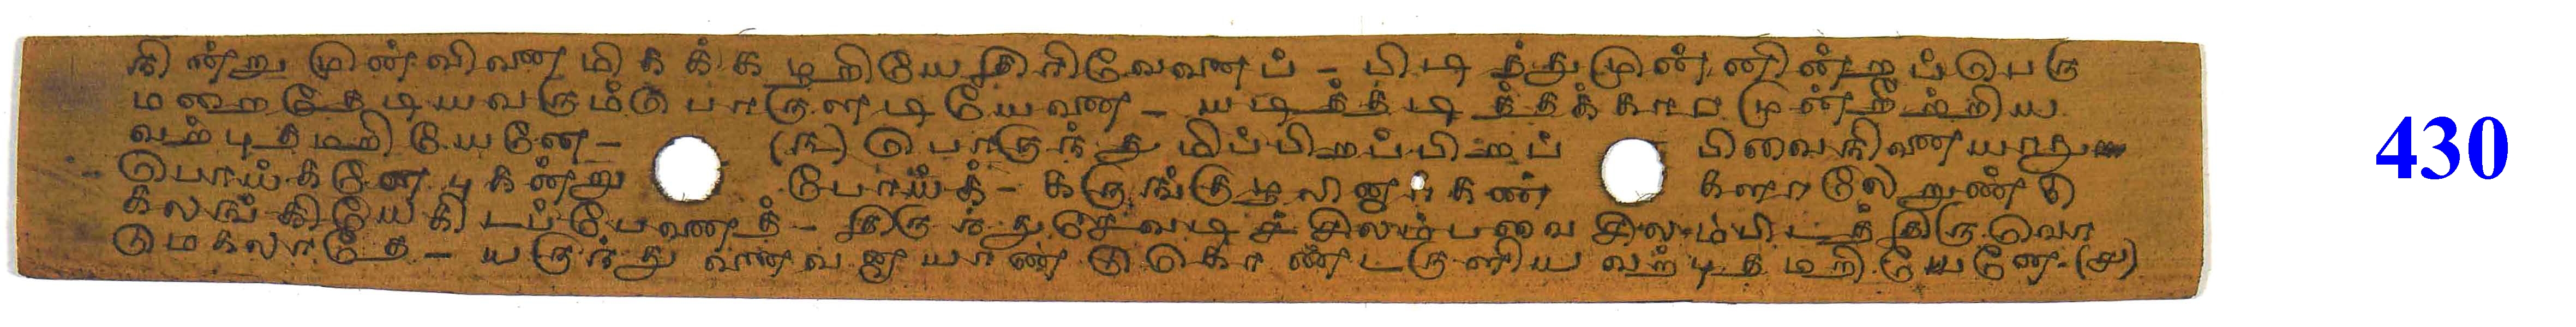 நின்று முன்வினை மிகக்கழறியே திரிவேனைப் - பிடித்து முன்னின்றப்பெரு
மறைதேடியவரும்பொருளடியேனை - யடித்தடித்தக்காரமுன்றீற்றிய
வற்புதமறியேனே - (௩) பொருந்துமிப்பிறப்பிறப் பிவைநினையாது
பொய்களே புகன்று போய்க் - கருங்குழலினார்கண் களாலேறுண்டு
கலங்கியே கிடப்பேனைத் - திருந்துசேவடிச் சிலம்பவை சிலம்பிடத் திருவொ
டுமகலாதே - யருந்துணைவனாயாண்டுகொண்டருளிய வற்புதமறியேனே - (௪)
430